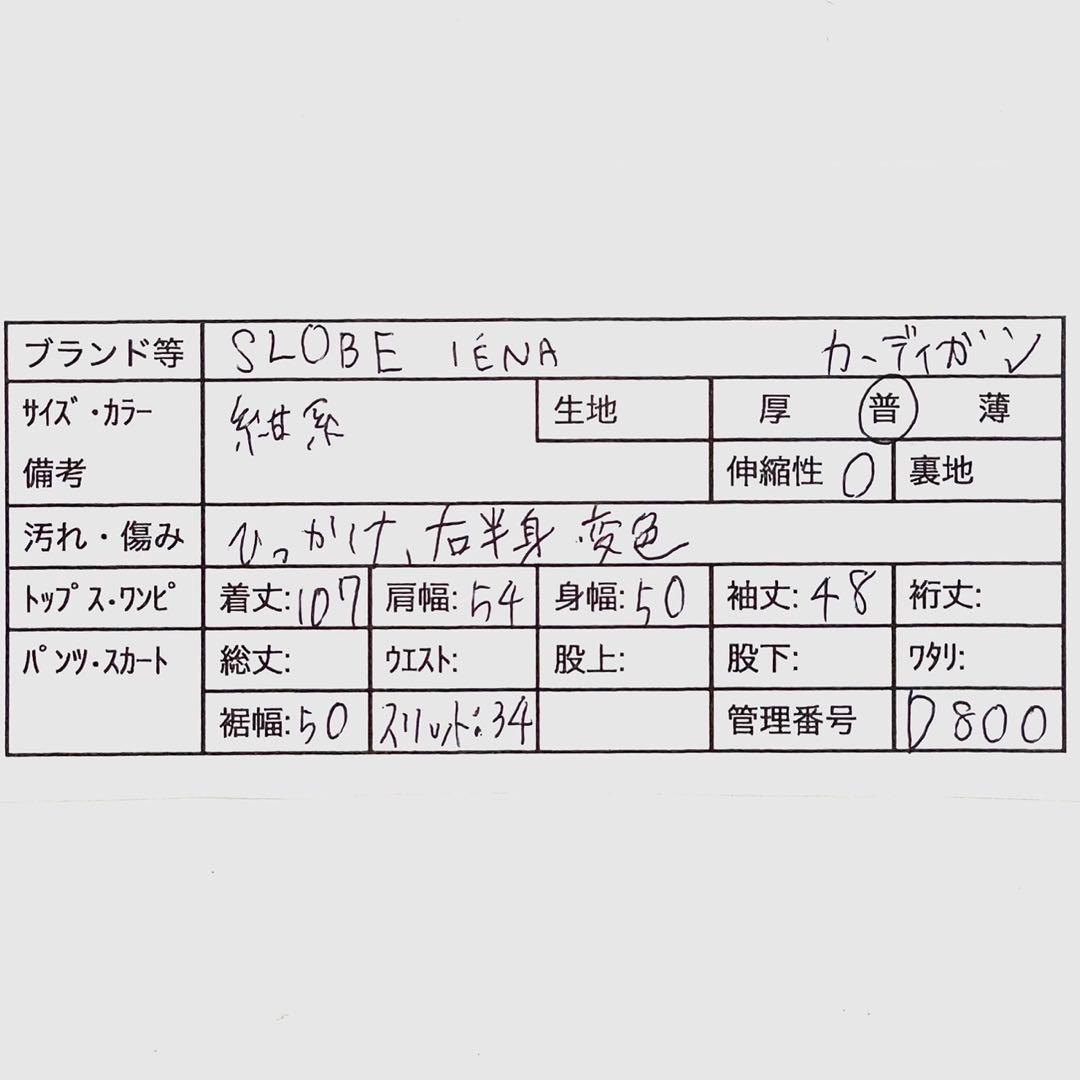 ブランド等 SLOBE IÉNA カーディガン
サイズ・カラー 紺系 生地 厚 普 薄
備考 伸縮性 〇 裏地
汚れ・傷み ひっかけ、右半身 変色
トップス・ワンピ 着丈:107 肩幅:54 身幅:50 袖丈:48 裄丈:
パンツ・スカート 総丈: ウエスト: 股上: 股下: ワタリ:
裾幅:50 スリット:34 管理番号 D800